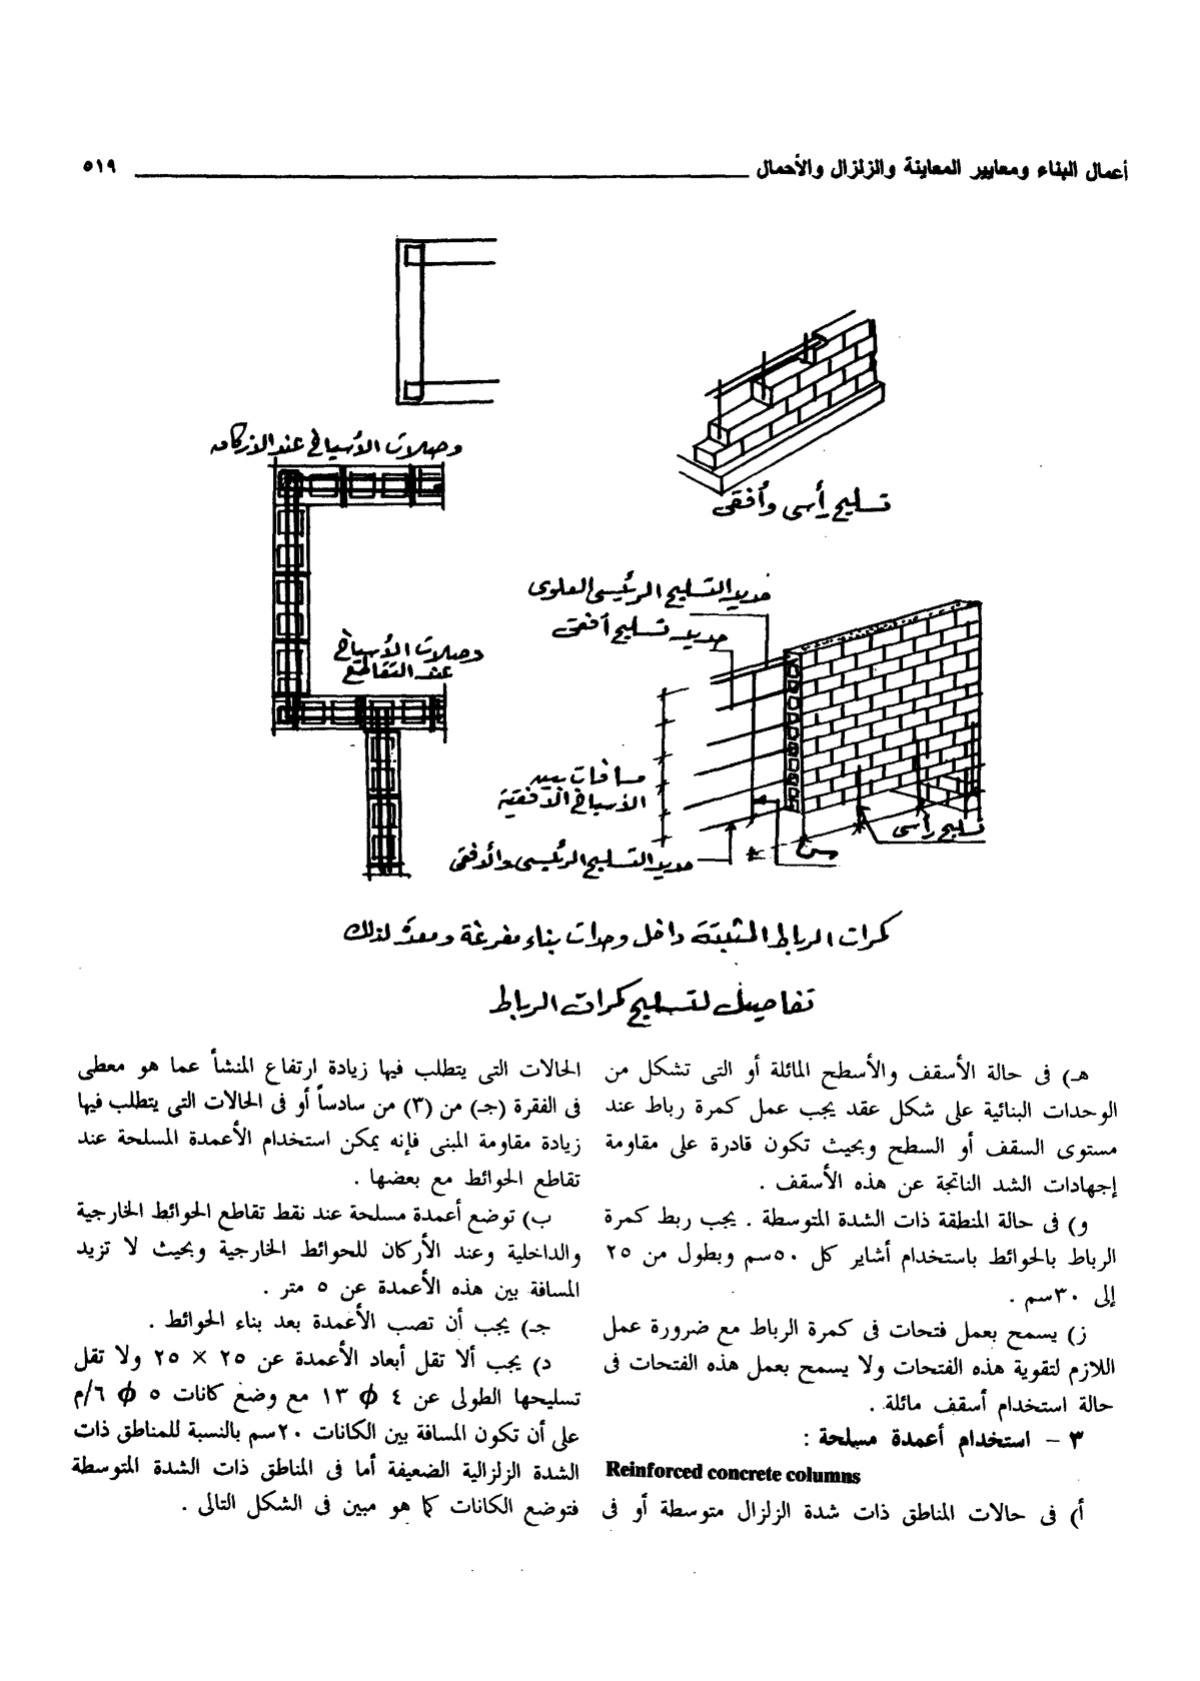 أعمال البناء ومعايير المعاينة والزلزال والأحمال ٥١٩
وصلات الأسياخ عند الاركان
تسليح رأسى وأفقى
حديد التسليح الرئيسى العلوى
حديد تسليح أفقى
وصلات الأسياخ
عند التقاطع
مسافات بين
الأسياخ الأفقية
تسليح رأسى
حديد التسليح الرئيسى والأفقى
كمرات الرباط المثبتة داخل وحدات بناء مفرغة ومعدة لذلك
تفاصيل لتسليح كمرات الرباط
هـ) فى حالة الأسقف والأسطح المائلة أو التى تشكل من
الوحدات البنائية على شكل عقد يجب عمل كمرة رباط عند
مستوى السقف أو السطح وبحيث تكون قادرة على مقاومة
إجهادات الشد الناتجة عن هذه الأسقف .
و) فى حالة المنطقة ذات الشدة المتوسطة . يجب ربط كمرة
الرباط بالحوائط باستخدام أشاير كل ٥٠سم وبطول من ٢٥
إلى ٣٠سم .
ز) يسمح بعمل فتحات فى كمرة الرباط مع ضرورة عمل
اللازم لتقوية هذه الفتحات ولا يسمح بعمل هذه الفتحات فى
حالة استخدام أسقف مائلة .
٣ – استخدام أعمدة مسلحة :
Reinforced concrete columns
أ) فى حالات المناطق ذات شدة الزلزال متوسطة أو فى
الحالات التى يتطلب فيها زيادة ارتفاع المنشأ عما هو معطى
فى الفقرة (جـ) من (٣) من سادساً أو فى الحالات التى يتطلب فيها
زيادة مقاومة المبنى فإنه يمكن استخدام الأعمدة المسلحة عند
تقاطع الحوائط مع بعضها .
ب) توضع أعمدة مسلحة عند نقط تقاطع الحوائط الخارجية
والداخلية وعند الأركان للحوائط الخارجية وبحيث لا تزيد
المسافة بين هذه الأعمدة عن ٥ متر .
جـ) يجب أن تصب الأعمدة بعد بناء الحوائط .
د) يجب ألا تقل أبعاد الأعمدة عن ٢٥ × ٢٥ ولا تقل
تسليحها الطولى عن ٤ ϕ ١٣ مع وضع كانات ٥ ϕ ٦/م
على أن تكون المسافة بين الكانات ٢٠سم بالنسبة للمناطق ذات
الشدة الزلزالية الضعيفة أما فى المناطق ذات الشدة المتوسطة
فتوضع الكانات كما هو مبين فى الشكل التالى .